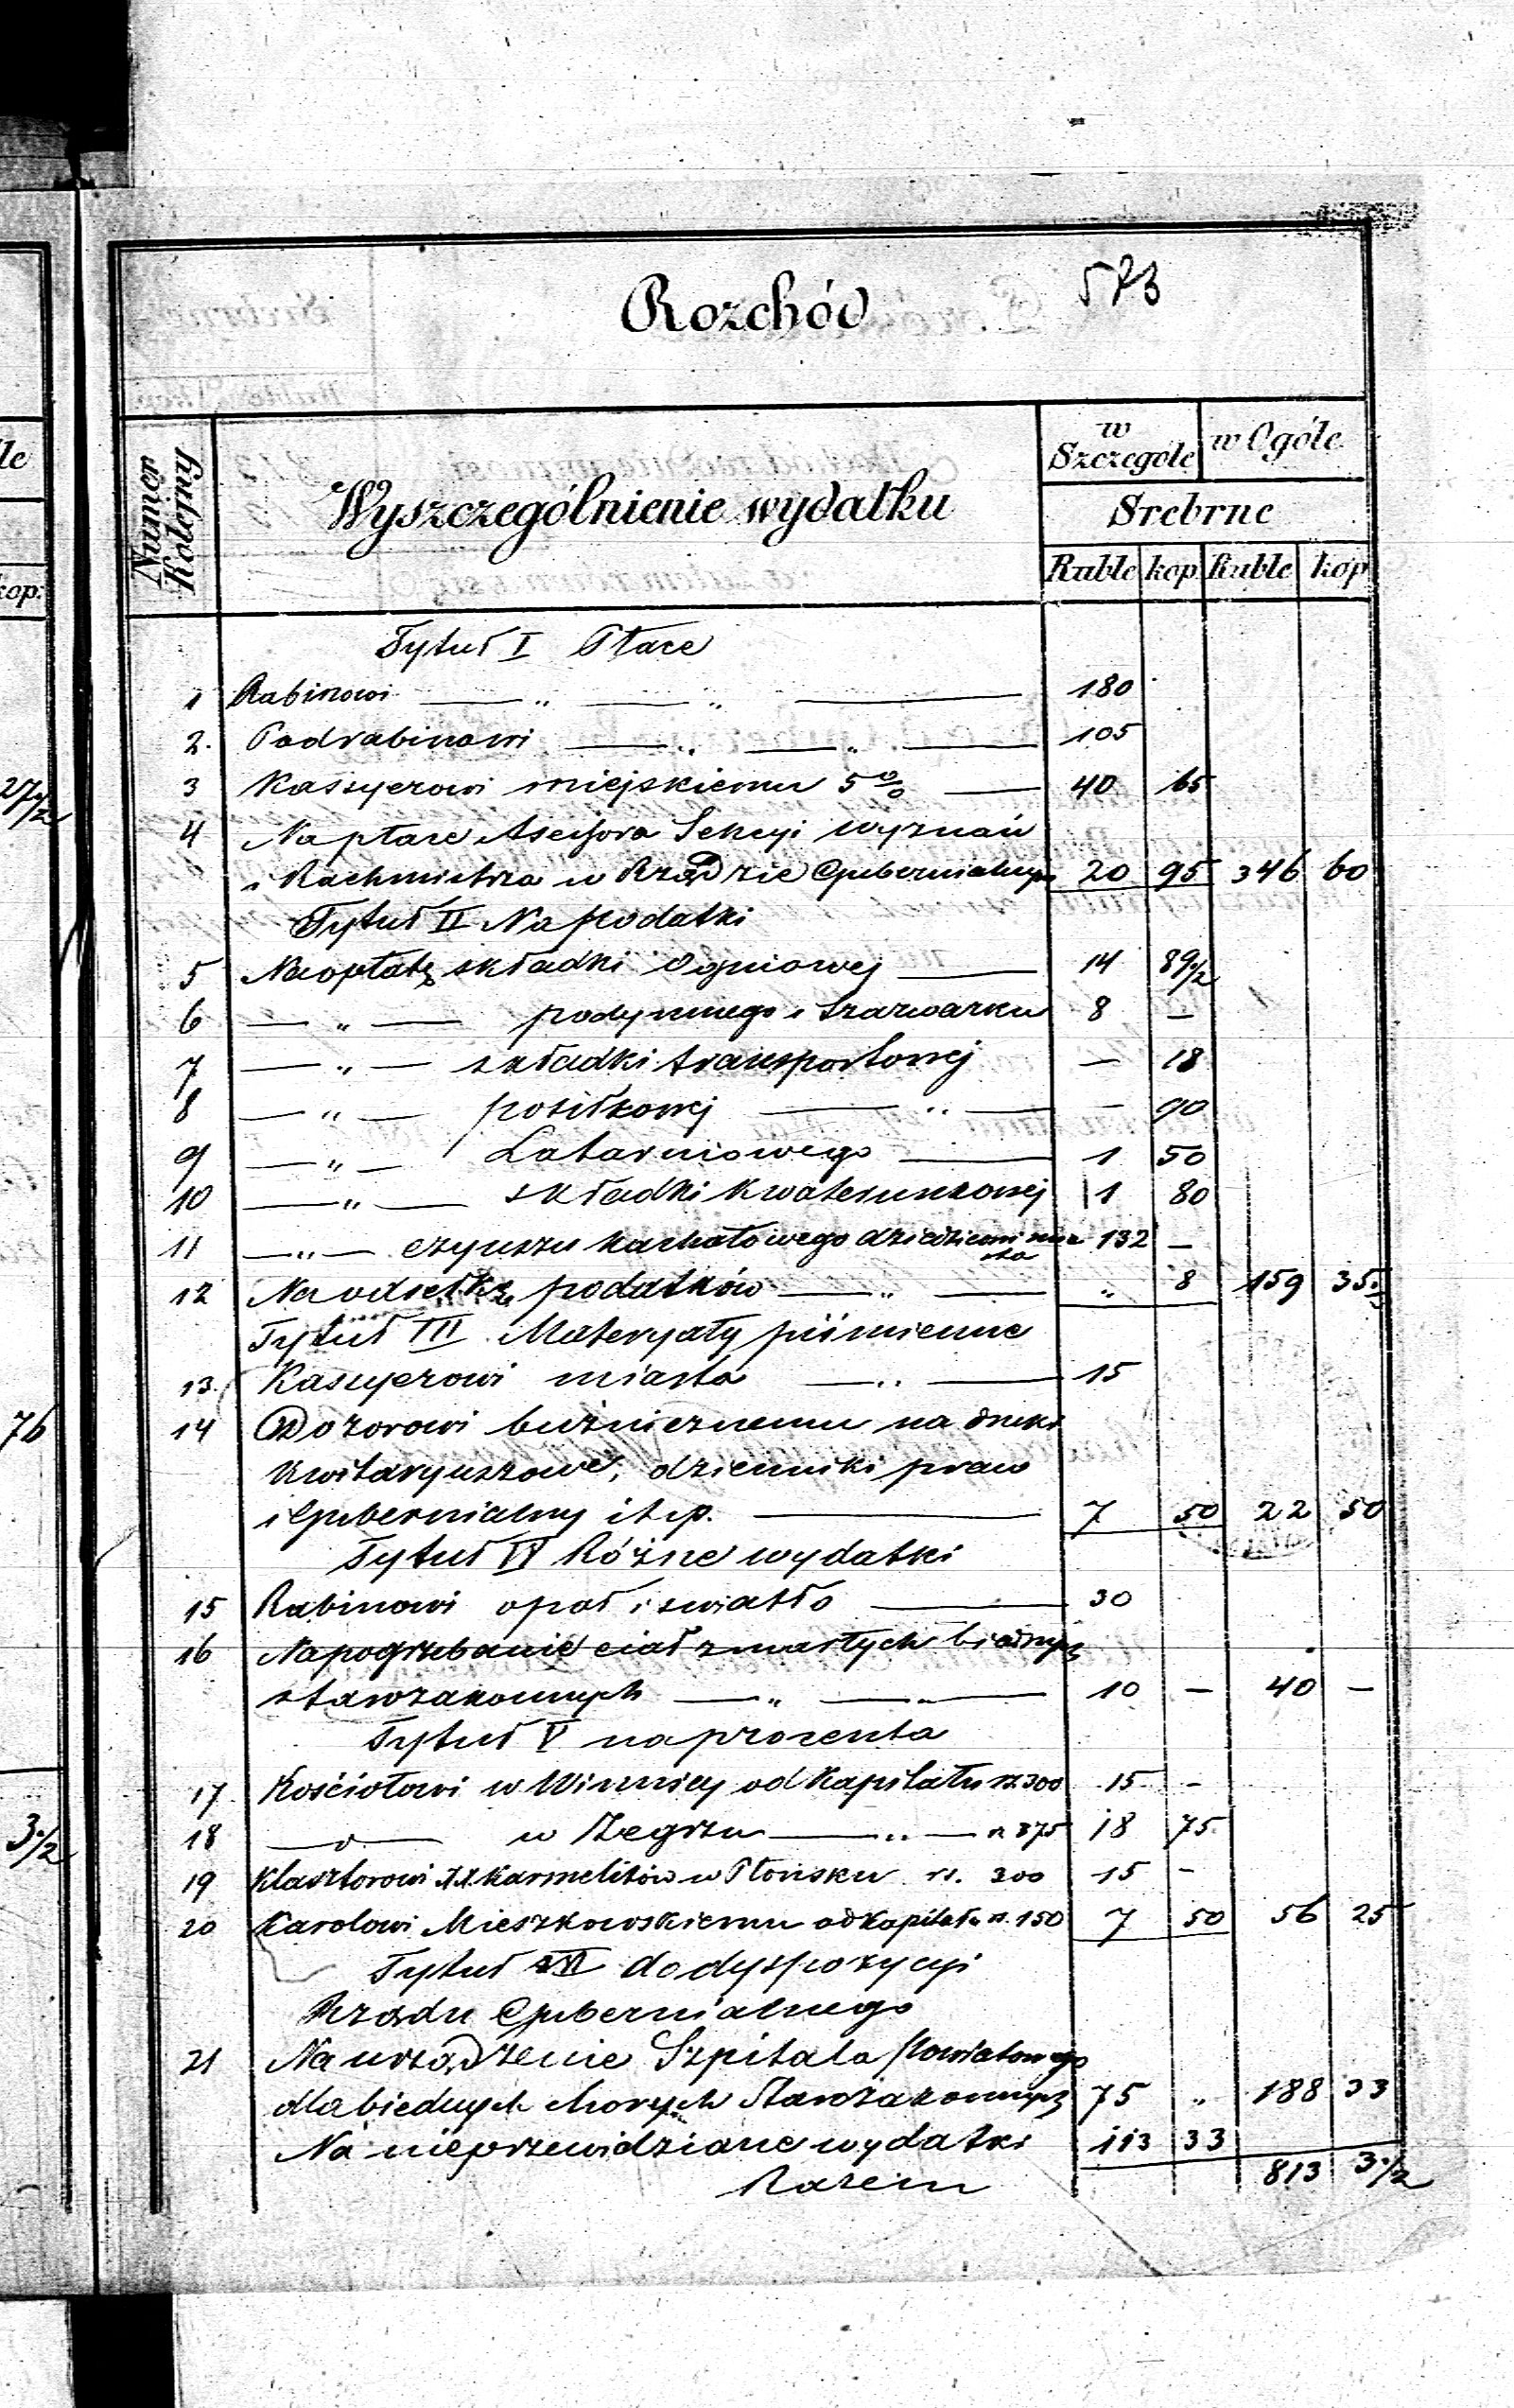 573
Rozchód
Numer Kolejny
Wyszczególnienie wydatku
w Szczególe
w Ogóle
Srebrne
Ruble kop Ruble kop
Tytuł I Płace
1 Rabinowi — „ — „ — 180
2. Podrabinowi — „ — „ — 105
3 Kassyerowi miejskiemu 5 % — 40 65
4 Na płace Asessora Sekcyi wyznań
i Rachmistrza w Rządzie Gubernialnym 20 95 346 60
Tytuł II Na podatki
5 Na opłatę składki Ogniowej — 14 89 1/2
6 — „ — podymnego i Szarwarku 8 —
7 — „ — składki transportowej — 18
8 — „ — posiłkowej — „ — — 90
9 — „ — Latarniowego — 1 50
10 — „ — składki kwaterunkowej 1 80
11 — „ — czynszu kachałowego dziedzicowi miasta 132 —
12 Na odsetkę podatków — „ — „ 8 159 35 1/2
Tytuł III Materyały piśmienne
13. Kassyerowi miasta — „ — 15
14 Dozorowi bużnicznemu na druki
kwitaryuszowe, dzienniki praw
i Gubernialny itp. — 7 50 22 50
Tytuł IV Różne wydatki
15 Rabinowi opał i swiatło — 30
16 Na pogrzebanie ciał zmarłych biednych
starozakonnych — „ — „ — 10 — 40 —
Tytuł V na procenta
17 Kościołowi w Winnicy od Kapitału rs. 300 15 —
18 — „ — w Zegrzu — „ — rs. 375 18 75
19 Klasztorowi XX Karmelitów w Płońsku rs. 300 15 —
20 Karolowi Mieszkowskiemu od kapitału rs. 150 7 50 56 25
Tytuł VI do dyspozycyi
Rządu Gubernialnego
21 Na urządzenie Szpitala Powiatowego
dla biednych chorych Starozakonnych 75 „ 188 33
Na nieprzewidziane wydatki 113 33
Razem 813 3 1/2
le
kop.
27 1/2
76
3 1/2